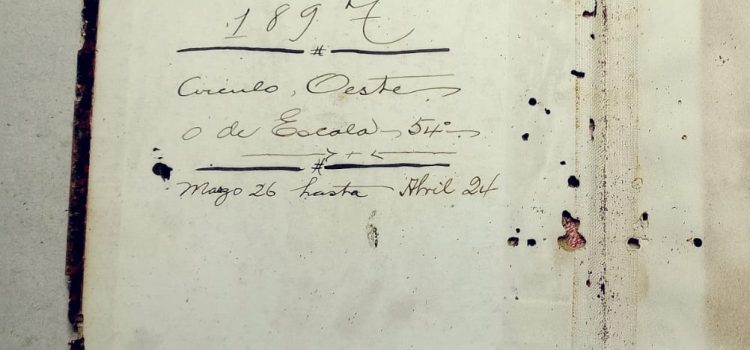 1897
Círculo, Oeste
o de Escala 54º
Marzo 26 hasta Abril 24